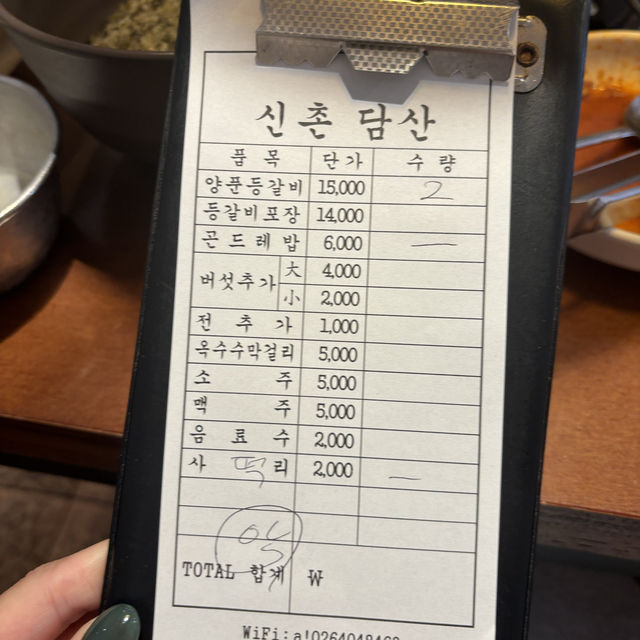 신촌 담산
품 목 단가 수 량
양푼등갈비 15,000 2
등갈비포장 14,000
곤드레밥 6,000 一
버섯추가 大 4,000
小 2,000
전 추 가 1,000
옥수수막걸리 5,000
소 주 5,000
맥 주 5,000
음 료 수 2,000
사 떡 리 2,000 一
TOTAL 합계 ₩